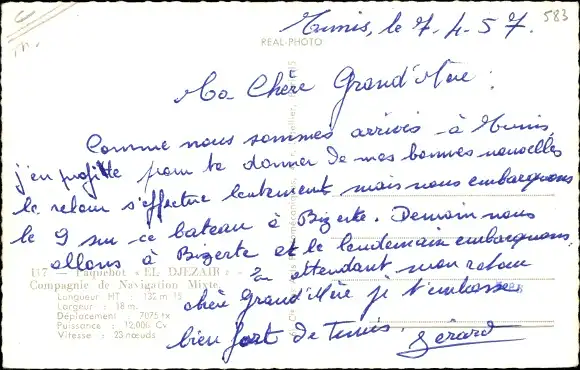 Tunis, le 7-4-57.
583
REAL-PHOTO
Ma Chère Grand'Mère :
Comme nous sommes arrivés à Tunis,
j'en profite pour te donner de mes bonnes nouvelles
le retour s'effectue lentement mais nous embarquons
le 9 sur ce bateau à Bizerte. Demain nous
allons à Bizerte et le lendemain embarquons,
117 — Paquebot « EL DJEZAIR » -
En attendant mon retour
Compagnie de Navigation Mixte.
Longueur HT : 132 m 15
chère Grand'Mère je t'embrasse
Largeur : 18 m.
Déplacement : 7075 tx
Puissance : 12.006 Cv
bien fort de Tunis.
Vitesse : 23 nœuds
Gérard